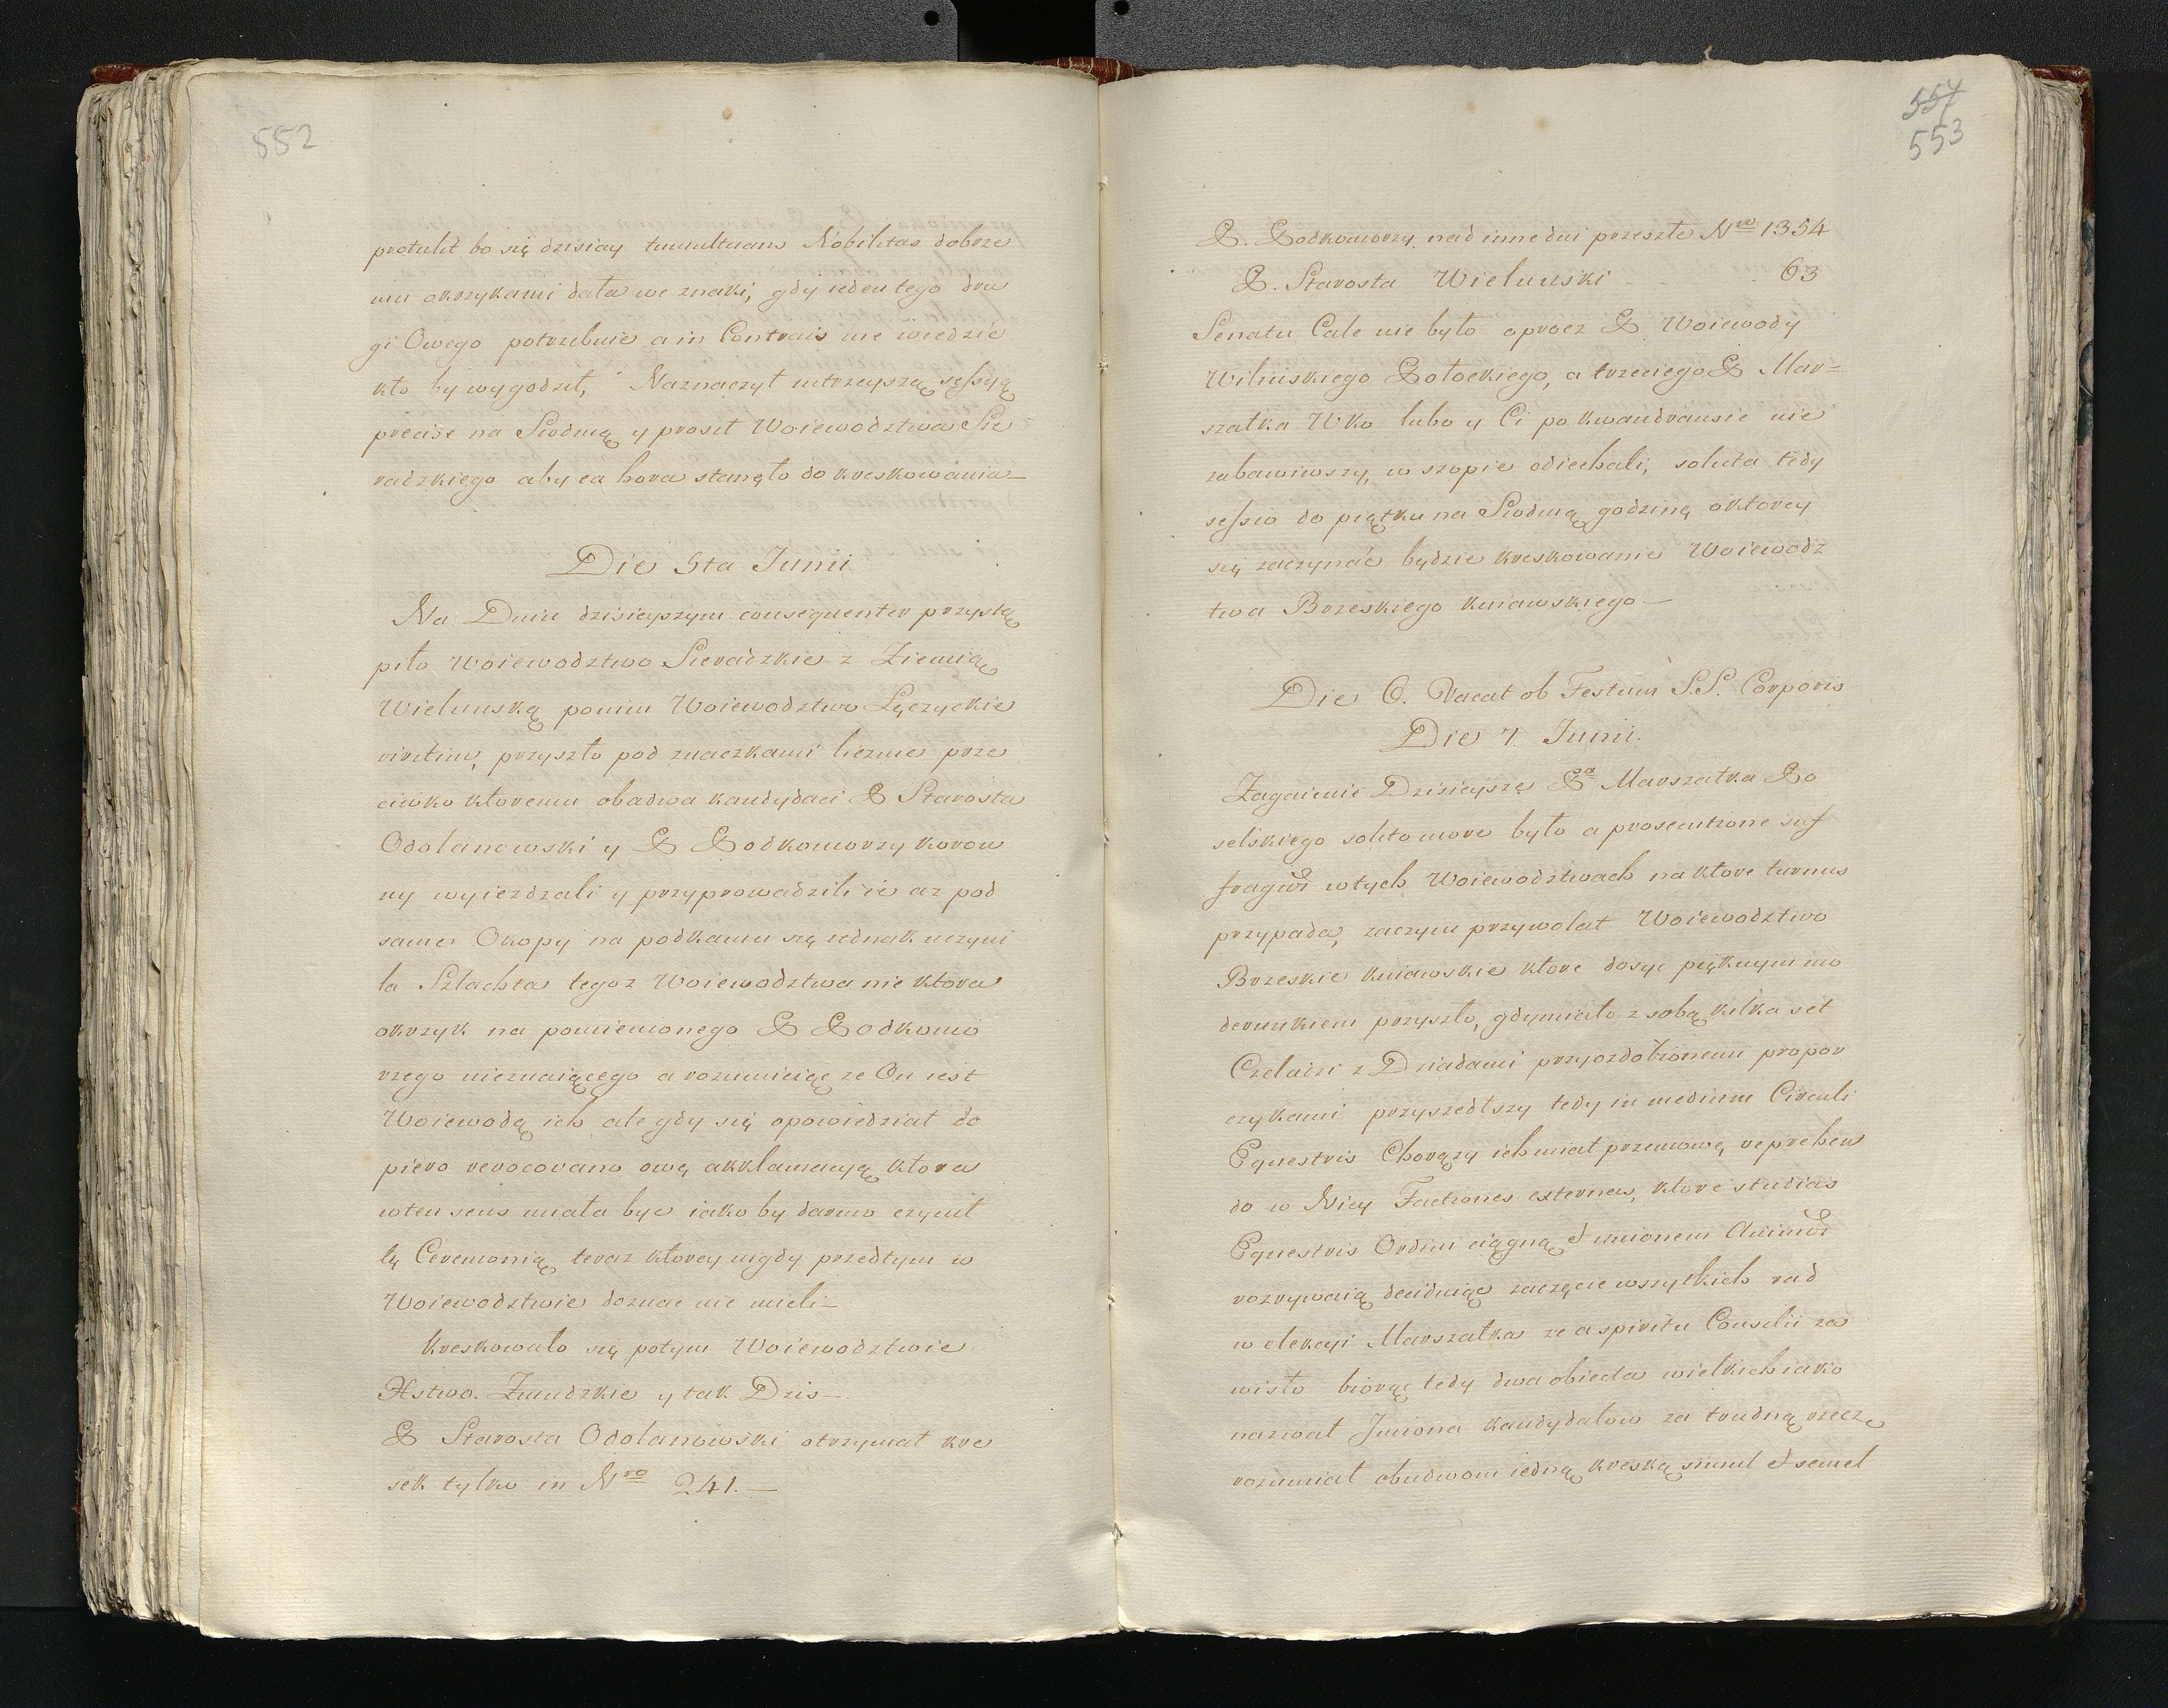 552
protulit bo się dzisiay tumultuans Nobilitas dobrze
mu okrzykami data we znaki, gdy ieden tego dru
gi Owego potrzebuie a in Contrais nie wiedzie
kto by wygodził, Naznaczył iutrzeyszą sessyą
precise na Siodmą y prosił Woiewodztwa Sie
radzkiego aby ea hora stanęło do kreskowania —
Die 5ta Junii
Na Dniu dzisieyszym consequenter przystą
piło Woiewodztwo Sieradzkie z Ziemią
Wielunską pomim Woiewodztwo Łęczyckie
viritim, przyszło pod znaczkami liczme prze
ciwko ktoremu obadwa kandydaci P Starosta
Odolanowski y P Podkomorzy koron
ny wyiezdzali y przyprowadzili ie az pod
same Okopy na podkaniu się iednak uczyni
ła Szlachta tegoz Woiewodztwa nie ktora
okrzyk na pomienionego P Podkomo
rzego nieznaiącego a rozumieiąc ze On iest
Woiewodą ich ale gdy się opowiedział do
piero revocovano owę akklamacyą ktora
wten sens miała byc iako by darmo czynił
tę Ceremonią teraz ktorey nigdy przedtym w
Woiewodztwie doznac nie mieli —
Kreskowało się potym Woiewodztwie
Xstwo. Zmudzkie y tak Dzis —
P Starosta Odolanowski otrzymał kre
sek tylko in Nro 241. —
554
553
P. Podkomorzy nad inne dni przeszłe Nro 1354
P. Starosta Wielunski - - . 63
Senatu Cale nie było oprocz P Woiewody
Wilinskiego Potockiego, a trzeciego P Mar=
szałka WKo lubo y Ci po kwandransie nie
zabawiwszy, w szopie odiechali, soluta tedy
sessio do piątku na Siodmą godzinę oktorey
się zaczynać będzie kreskowanie Woiewodz
twa Brzeskiego kuiawskiego —
Die 6. Vacat ob Festum S.S. Corporis
Die 7. Junii.
Zagaienie Dzisieysze Pa Marszałka Po
selskiego solito more było a prosecutione suf
fragior wtych Woiewodztwach na ktore turnus
przypada, zaczym przywołał Woiewodztwo
Brzeskie kuiawskie ktore dosyc pięknym mo
derunkiem przyszło, gdymiało z sobą kilka set
Czeladzi z Dziadami przyozdobionemi propor
czykami przyszedłszy tedy in medium Circuli
Equestris Chorązy ich miał przemowę, reprehen
do w Niey Factiones externas, ktore studias
Equestris Ordini ciągną et unionem Animor
rozrywaią deciduiąc zaczęcie wszytkich rad
w elekcyi Marszałka ze a spiritu Consilii za
wisło biorąc tedy dwa obiecta wielkich iako
nazwał Jmiona kandydatow za trudną rzecz
rozumiał obudwom iedną kreską simul et semel